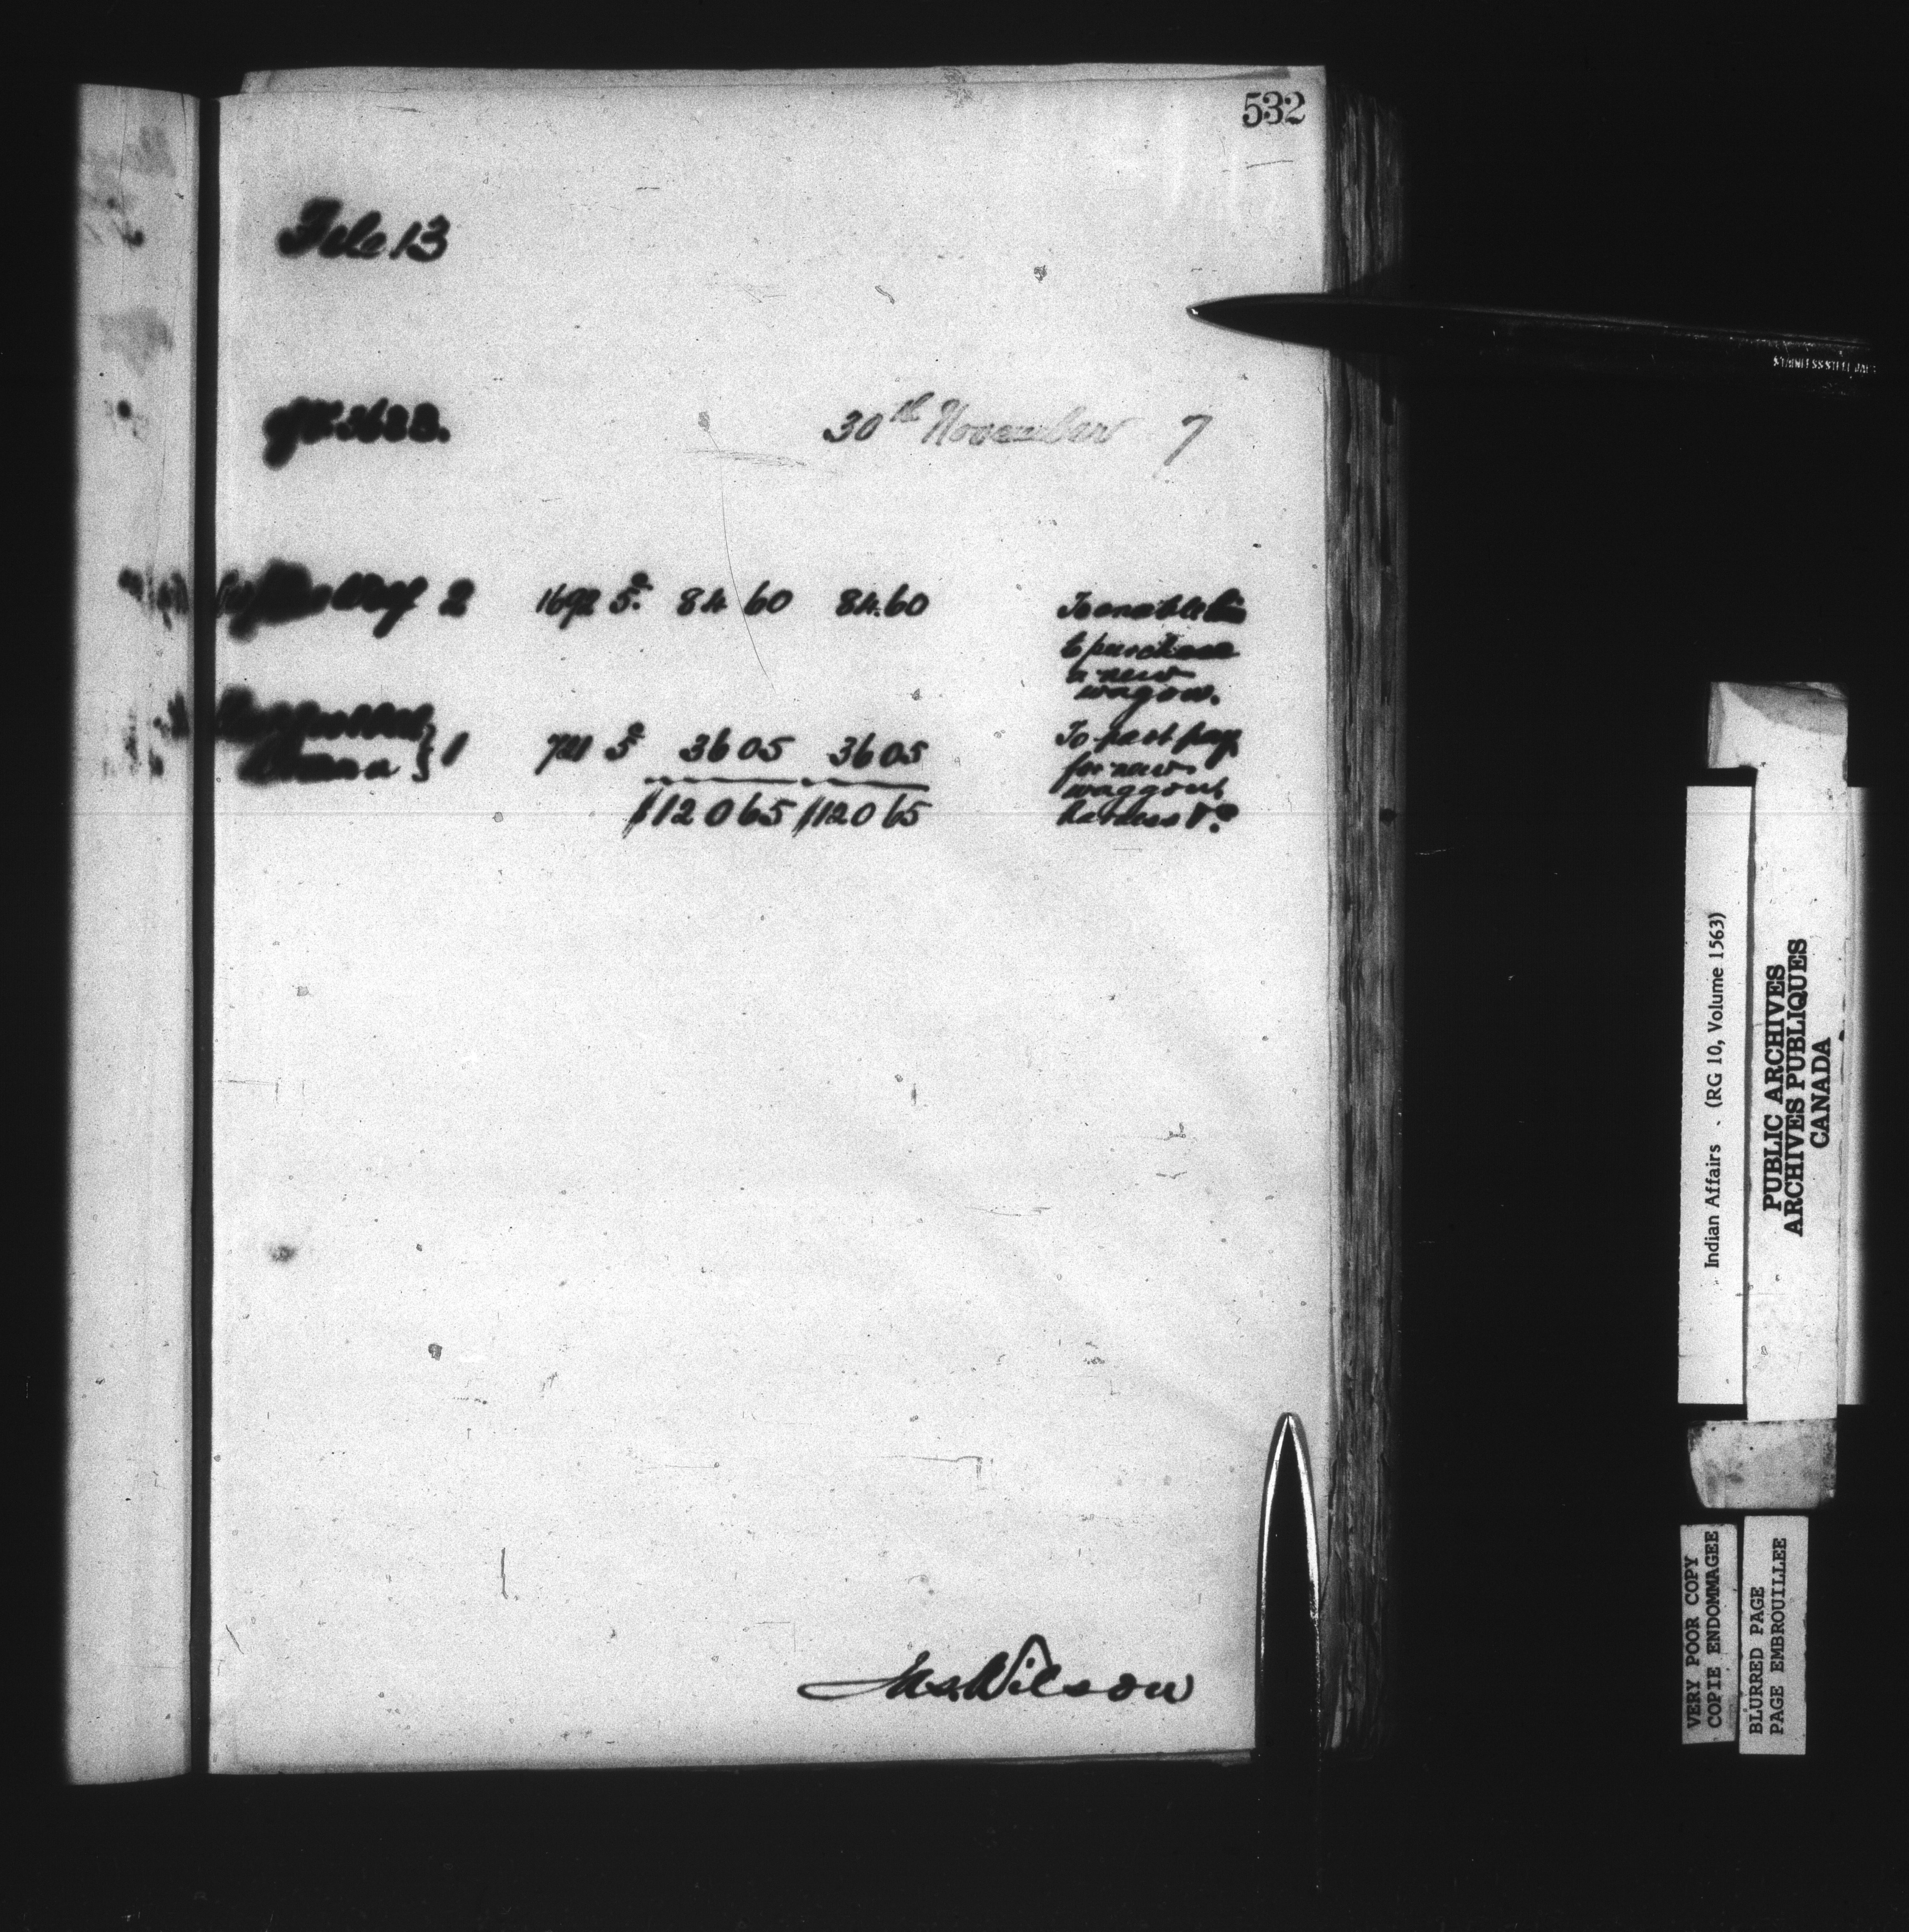 532
File 13
30th November 7
2 1692 5c 84 60 84.60 To enable him
to purchase
a new
wagon.
1 721 5c 36 05 36 05 To part pay
for new
waggon,
harness &c
$120 65 $120 65
Jas. Wilson
STAINLESS STEEL
Indian Affairs . (RG 10, Volume 1563)
PUBLIC ARCHIVES
ARCHIVES PUBLIQUES
CANADA
VERY POOR COPY
COPIE ENDOMMAGEE
BLURRED PAGE
PAGE EMBROUILLEE